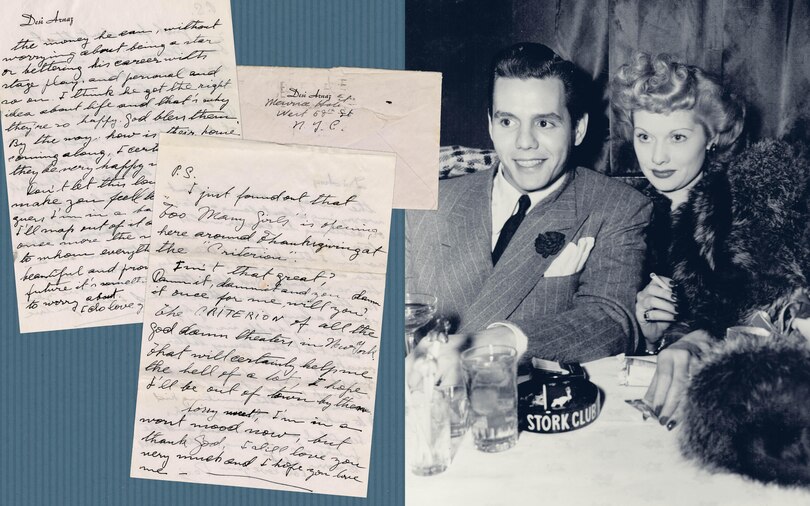 Desi Arnaz
the money he can, without
worrying about being a star
or bettering his career with
stage plays and personal and
so on. I think he got the right
idea about life and that's why
they're so happy God bless them
By the way how is their home
coming along, I cert
they be very happy
Don't let this lou
make you feel b
guess I'm in a ba
I'll snap out of it a
once more the
to whom everyth
beautiful and prou
future it's somet
to worry about.
I do love y
Desi Arnaz
Maurice Hotel
West 58th St
N.Y.C.
P.S.
I just found out that
"Too Many Girls" is opening
here around Thanksgiving at
the "Criterion".
Isn't that great?
Damn it, damn it and you damn
it once for me will you?
the CRITERION of all the
god damn theaters in New York
that will certainly help me
the hell of a lot, I hope
I'll be out of town by then
Sorry sweet, I'm in a
worst mood now, but
thank God I still love you
very much and I hope you love
me
STORK CLUB